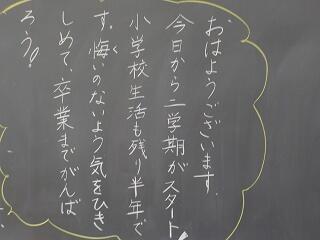 おはようございます。
今日から二学期がスタート!
小学校生活も残り半年で
す。悔いのないよう気をひき
しめて、卒業までがんば
ろう!